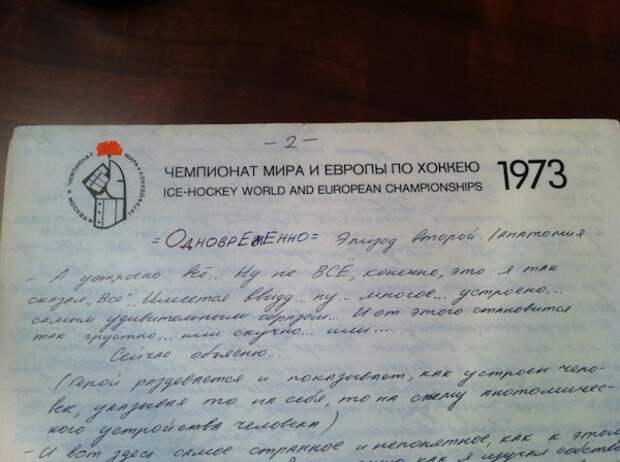 - 2 -
ЧЕМПИОНАТ МИРА И ЕВРОПЫ ПО ХОККЕЮ 1973
ICE-HOCKEY WORLD AND EUROPEAN CHAMPIONSHIPS
=ОДНОВРЕМЕННО= Эпизод второй. /Анатомия
- А устроено всё... Ну не ВСЁ, конечно, это я так
сказал „Всё". Имеется ввиду... ну... многое... устроено...
самым удивительным образом... И от этого становится
так грустно... или скучно... или...
Сейчас объясню...
(Герой раздевается и показывает, как устроен чело-
век, указывая то на себя, то на схему анатомичес-
кого устройства человека)
- И вот здесь самое странное и непонятное, как к этому
как я изучал